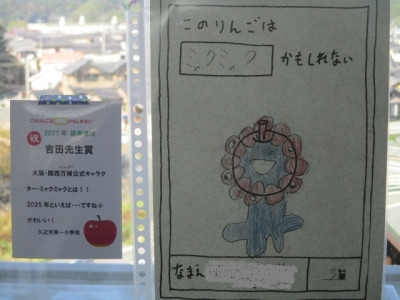 このりんごは かもしれない
祝
2025年
吉田先生賞
大阪・関西万博公式キャラク
ター・ミャクミャクとは！！
2025年といえば・・・ですね☆
かわいい！
このりんごは
ミャクミャク
かもしれない
なまえ